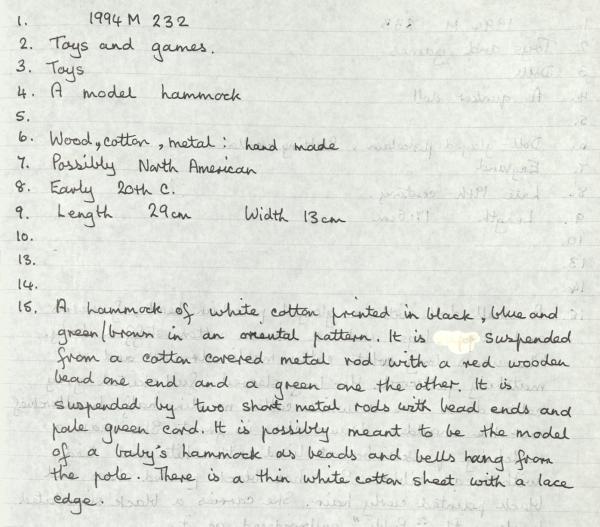 1. 1994 M 232
2. Toys and games.
3. Toys
4. A model hammock
5.
6. Wood, cotton, metal: hand made
7. Possibly North American
8. Early 20th C.
9. Length 29cm Width 13cm
10.
13.
14.
15. A hammock of white cotton printed in black, blue and
green/brown in an oriental pattern. It is suspended
from a cotton covered metal rod with a red wooden
bead one end and a green one the other. It is
suspended by two short metal rods with bead ends and
pale green cord. It is possibly meant to be the model
of a baby's hammock as beads and bells hang from
the pole. There is a thin white cotton sheet with a lace
edge.